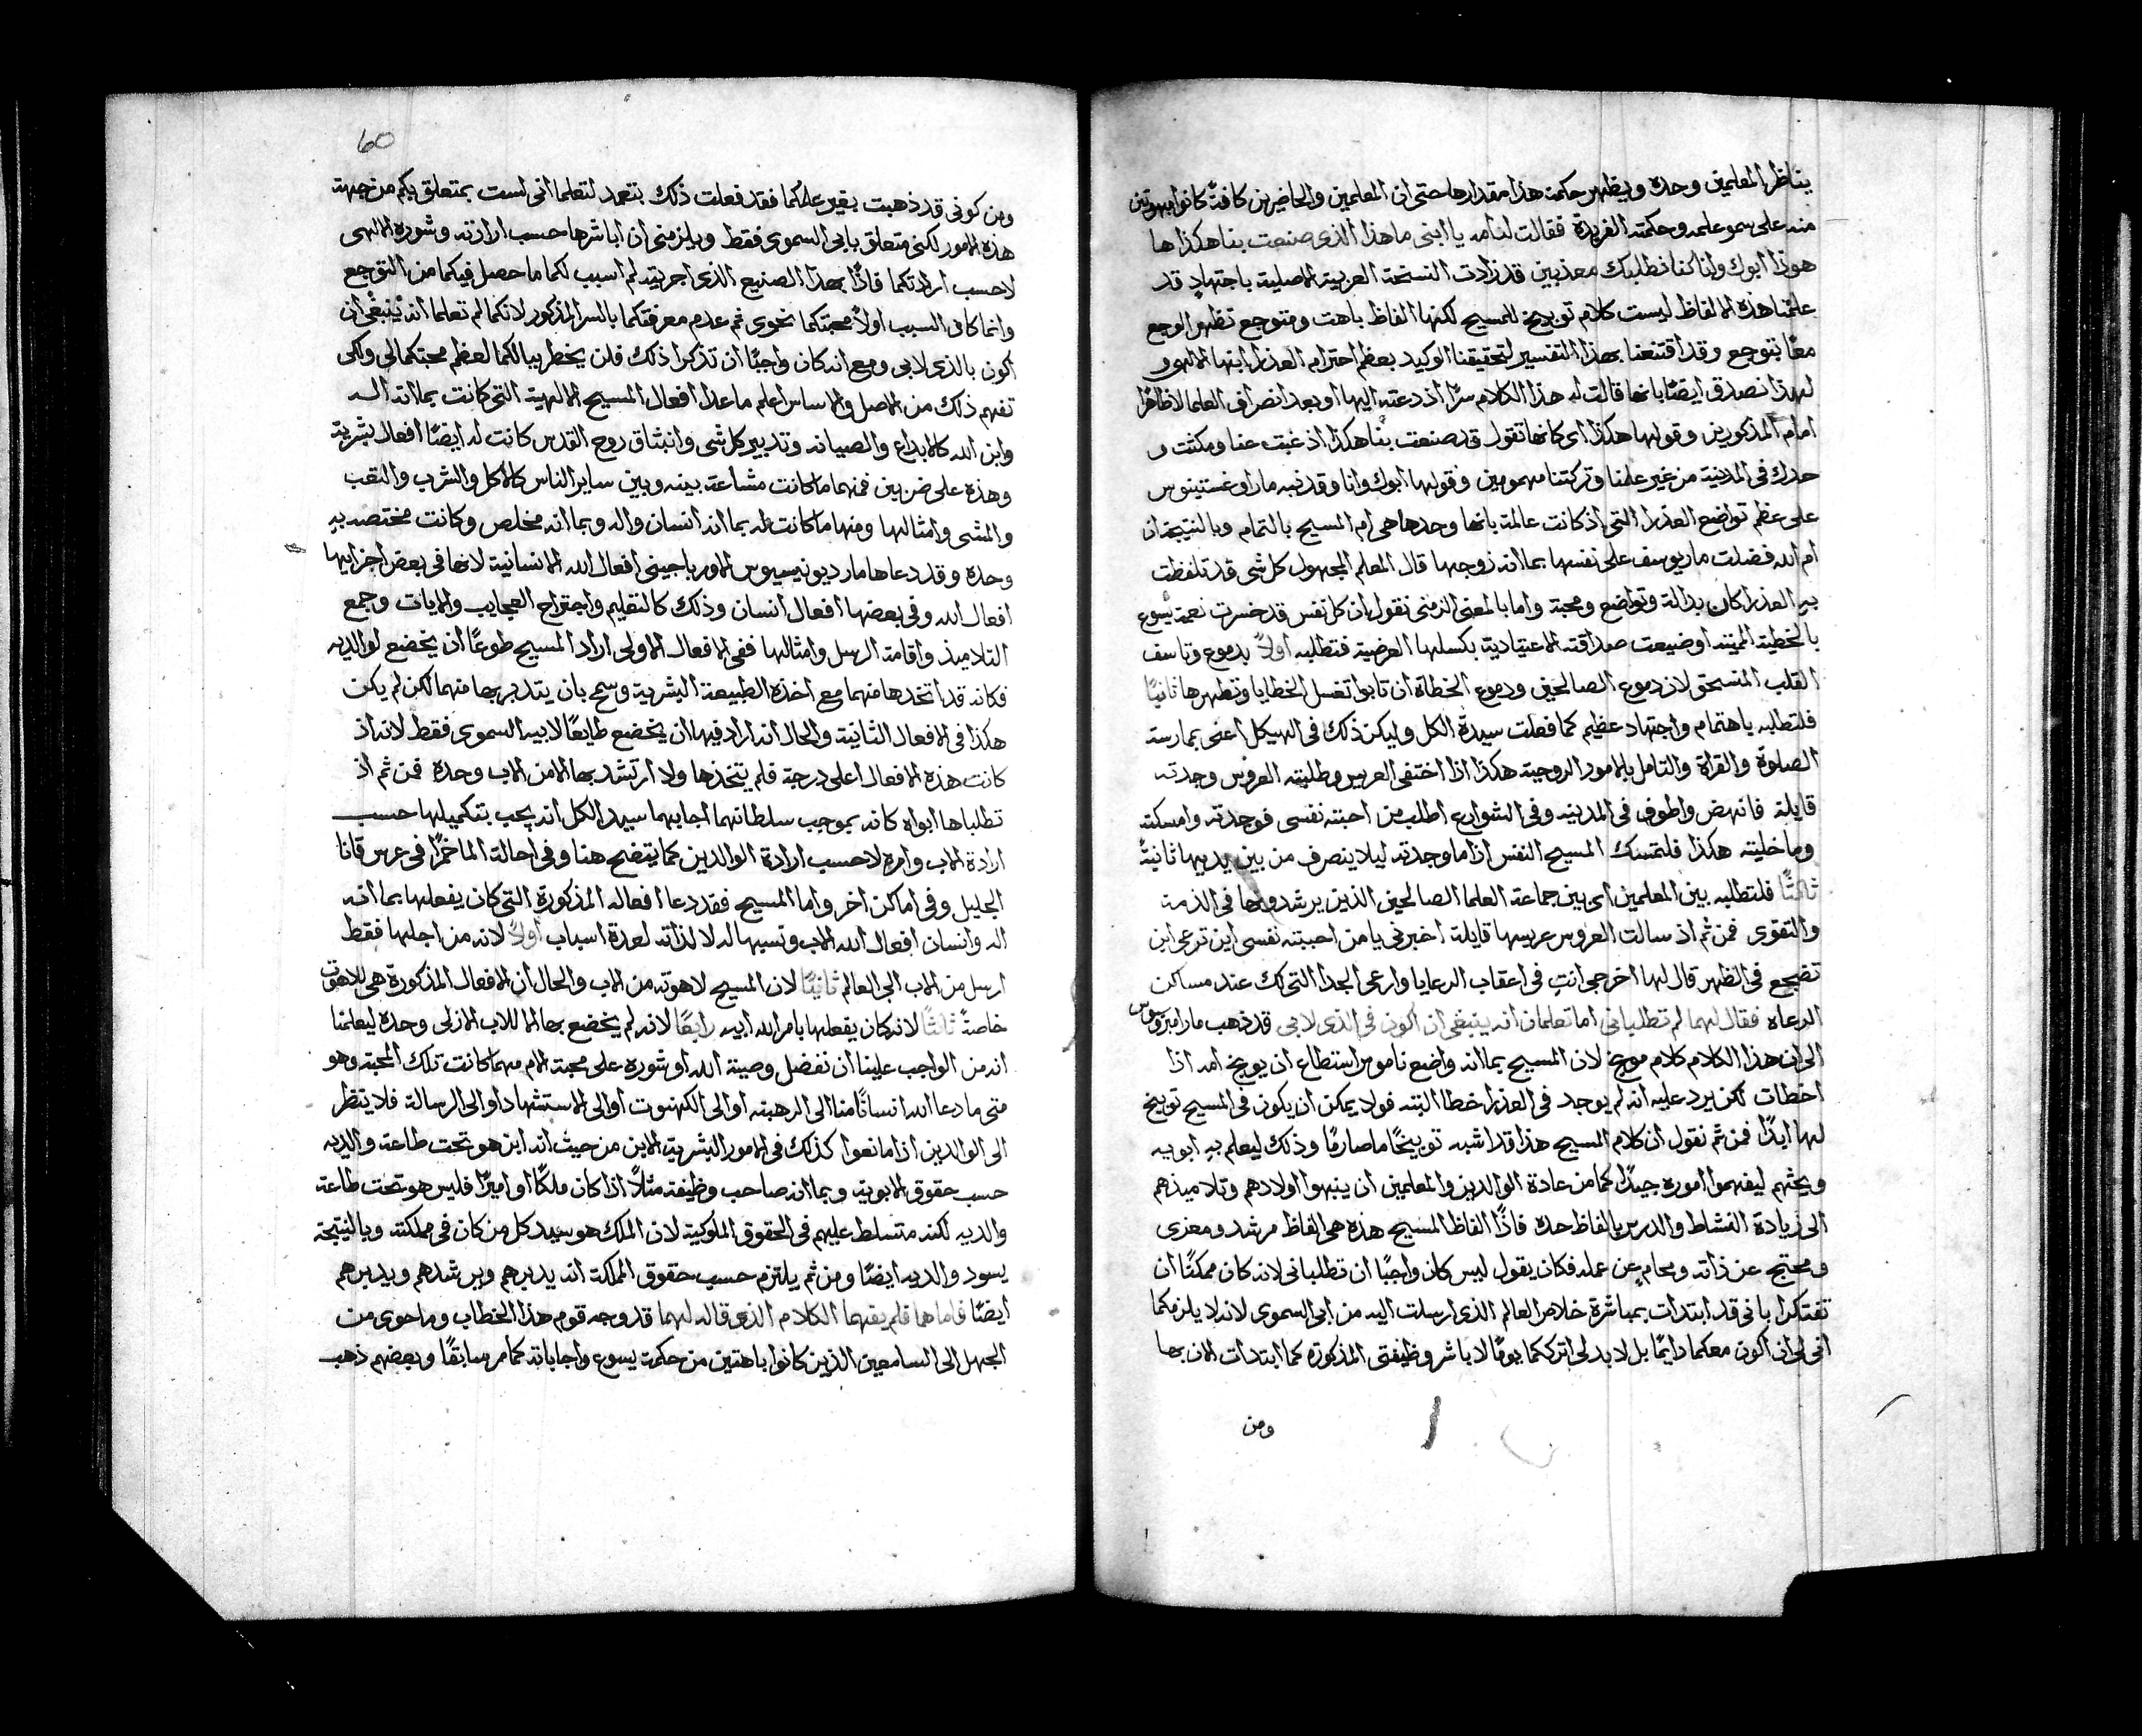 يناظر المعلمين وحده ويظهر حكمة هذا مقدارها حتى ان المعلمين والحاضرين كافةً كانوا مبهوتين
منه على سمو علمه وحكمته الفريدة فقالت له امه يا ابنى ما هذا الذى صنعت بنا هكذا ها
هوذا ابوك وانا كنا نطلبك معذبين قد زادت النسخة العربية الاصلية باجتهادٍ قد
علمتنا هذه الالفاظ ليست كلام توبيخ للمسيح لكنها الفاظ باهت ومتوجع تظهر الوجع
معًا بتوجع وقد اقتنعنا بهذا التفسير لتحقيقنا الوكيد بعظم احترام العذرا ابنها الالهى و
لهذا نصدق ايضًا بانها قالت له هذا الكلام سرًا اذ دعته اليها او بعد انصراف العلما لا ظاهرًا
امام المذكورين وقولها هكذا اى كانها تقول قد صنعت بنا هكذا اذ غبت عنا ومكثت و
حدك فى المدينة من غير علمنا وتركتنا مهمومين وقولها ابوك وانا وقد نبه مار اوغستينوس
على عظم تواضع العذرا التى اذ كانت عالمة بانها وحدها هى ام المسيح بالتمام وبالنتيجة ان
ام الله فضلت مار يوسف على نفسها بما انه زوجها قال المعلم المجهول كل شى قد تلفظت
به العذرا كان بدالة وتواضع ومحبة واما بالمعنى الرمزى نقول ان كل نفس قد خسرت نعمة يسوع
بالخطية المميتة او ضيعت صداقته الاعتيادية بكسلها العرضية فتطلبه اولاً بدموع وتاسف
القلب المنسحق لان دموع الصالحين ودموع الخطاة ان تابوا تغسل الخطايا وتطهرها ثانيًا
فلتطلبه باهتمام واجتهاد عظيم كما فعلت سيدة الكل وليكن ذلك فى الهيكل اعنى بممارسة
الصلوة والقراة والتامل بالامور الروحية هكذا اذا اختفى العريس وطلبته العروس وجدته
قايلة فانهض واطوف فى المدينه وفى الشوارع اطلب من احبته نفسى فوجدته وامسكته
وما خليته هكذا فلتمسك المسيح النفس اذا ما وجدته ليلا ينصرف من بين يديها ثانيةً
ثالثًا فلتطلبه بين المعلمين اى بين جماعة العلما الصالحين الذين يرشدونها فى الذمة
والتقوى فمن ثم اذ سالت العروس عريسها قايلة اخبرنى يا من احببته نفسى اين ترعى اين
تضجع فى الظهر قال لها اخرجى انتِ فى اعقاب الرعايا وارعى الجدا التى لك عند مساكن
الرعاه فقال لهما لم تطلبانى اما تعلمان انه ينبغى ان اكون فى الذى لابى قد ذهب مار امبروسيوس
الى ان هذا الكلام كلام موبخ لان المسيح بما انه واضع ناموس استطاع ان يوبخ امه اذا
اخطات لكن يرد عليه انه لم يوجد فى العذرا خطا البتة فولا يمكن ان يكون فى المسيح توبيخ
لها ابدًا فمن ثم نقول ان كلام المسيح هذا قد اشبه توبيخًا ما صارمًا وذلك ليعلم به ابويه
ويحثهم ليفهموا اموره جيدًا كما من عادة الوالدين والمعلمين ان ينبهوا اولادهم وتلاميذهم
الى زيادة النشاط والدرس بالفاظ حدة فاذًا الفاظ المسيح هذه هى الفاظ مرشد ومعزى
ومحتج عن ذاته ومحامٍ عن عمله فكان يقول ليس كان واجبًا ان تطلبانى لانه كان ممكنًا ان
تفتكرا بانى قد ابتدات بمباشرة خلاص العالم الذى ارسلت اليه من ابى السموى لانه لا يلزمكما
انى لى ان اكون معكما دايمًا بل لا بد لى اترككما يومًا لاباشر وظيفتى المذكورة كما ابتدات الان بها
ومن
60
ومن كونى قد ذهبت بغير علمكما فقد فعلت ذلك بتعمد لتعلما انى لست بمتعلق بكم من جهة
هذه الامور لكنى متعلق بابى السموى فقط ويلزمنى ان اباشرها حسب ارادته وشوره الالهى
لا حسب ارادتكما فاذًا بهذا الصنيع الذى اجريته لم اسبب لكما ما حصل فيكما من التوجع
وانما كان السبب اولاً محبتكما نحوى ثم عدم معرفتكما بالسر المذكور لانكما لم تعلما انه ينبغى ان
اكون بالذى لابى ومع انه كان واجبًا ان تذكرا ذلك فلن يخطر ببالكما لعظم محبتكما لى ولكى
تفهم ذلك من الاصل والاساس اعلم ما عدا افعال المسيح الالهية التى كانت بما انه اله
وابن الله كالابداع والصيانه وتدبير كل شى وانبثاق روح القدس كانت له ايضًا افعال بشرية
وهذه على ضربين فمنها ما كانت مشاعة بينه وبين ساير الناس كالاكل والشرب والتعب
والمشى وامثالها ومنها ما كانت له بما انه انسان واله وبما انه مخلص وكانت مختصه به
وحده وقد دعاها مار ديونيسيوس الاورباجيتى افعال الله الانسانية لانها فى بعض اجزايها
افعال الله وفى بعضها افعال انسان وذلك كالتعليم واجتراح العجايب والايات وجمع
التلاميذ واقامة الرسل وامثالها ففى الافعال الاولى اراد المسيح طوعًا ان يخضع لوالديه
فكانه قد اتخدها منهما مع اخذه الطبيعة البشرية وسمح بان يتدبر بها منهما لكن لم يكن
هكذا فى الافعال الثانية والحال انه اراد فيها ان يخضع طايعًا لابيه السموى فقط لانه اذ
كانت هذه الافعال اعلى درجة فلم يتخذها ولا ارتشد بها الا من الاب وحده فمن ثم اذ
تطلباها ابواه كانه بموجب سلطانهما اجابهما سيد الكل انه يجب بتكميلها حسب
ارادة الاب وامره لا حسب ارادة الوالدين كما يتضح هنا وفى احالة الما خمرًا فى عرس قانا
الجليل وفى اماكن اخر واما المسيح فقد دعا افعاله المذكورة التى كان يفعلها بما انه
اله وانسان افعال الله الاب ونسبها له لا لذاته لعدة اسباب اولاً لانه من اجلها فقط
ارسل من الاب الى العالم ثانيًا لان المسيح لاهوته من الاب والحال ان الافعال المذكورة هى للاهوت
خاصةً ثالثًا لانه كان يفعلها بامر الله ابيه رابعًا لانه لم يخضع بها الا للاب الازلى وحده ليعلمنا
انه من الواجب علينا ان نفضل وصية الله او شوره على محبة الام مهما كانت تلك المحبة وهو
متى ما دعا الله انسانًا منا الى الرهبنه او الى الكهنوت او الى الاستشهاد او الى الرسالة فلا ينظر
الى الوالدين اذا مانعوا كذلك فى الامور البشرية الابن من حيث انه ابن هو تحت طاعة والديه
حسب حقوق الابوية وبما انه صاحب وظيفة مثلاً اذا كان ملكًا او اميرًا فليس هو تحت طاعة
والديه لكنه متسلط عليهم فى الحقوق الملوكية لان الملك هو سيد كل من كان فى مملكته وبالنتيجة
يسود والديه ايضًا ومن ثم يلتزم حسب حقوق المملكة انه يدبرهم ويرشدهم ويدبرهم
ايضًا فاما هما فلم يفهما الكلام الذى قاله لهما قد وجه قوم هذا الخطاب وما حوى من
الجهل الى السامعين الذين كانوا باهتين من حكمة يسوع واجاباته كما مر سابقًا وبعضهم ذهب